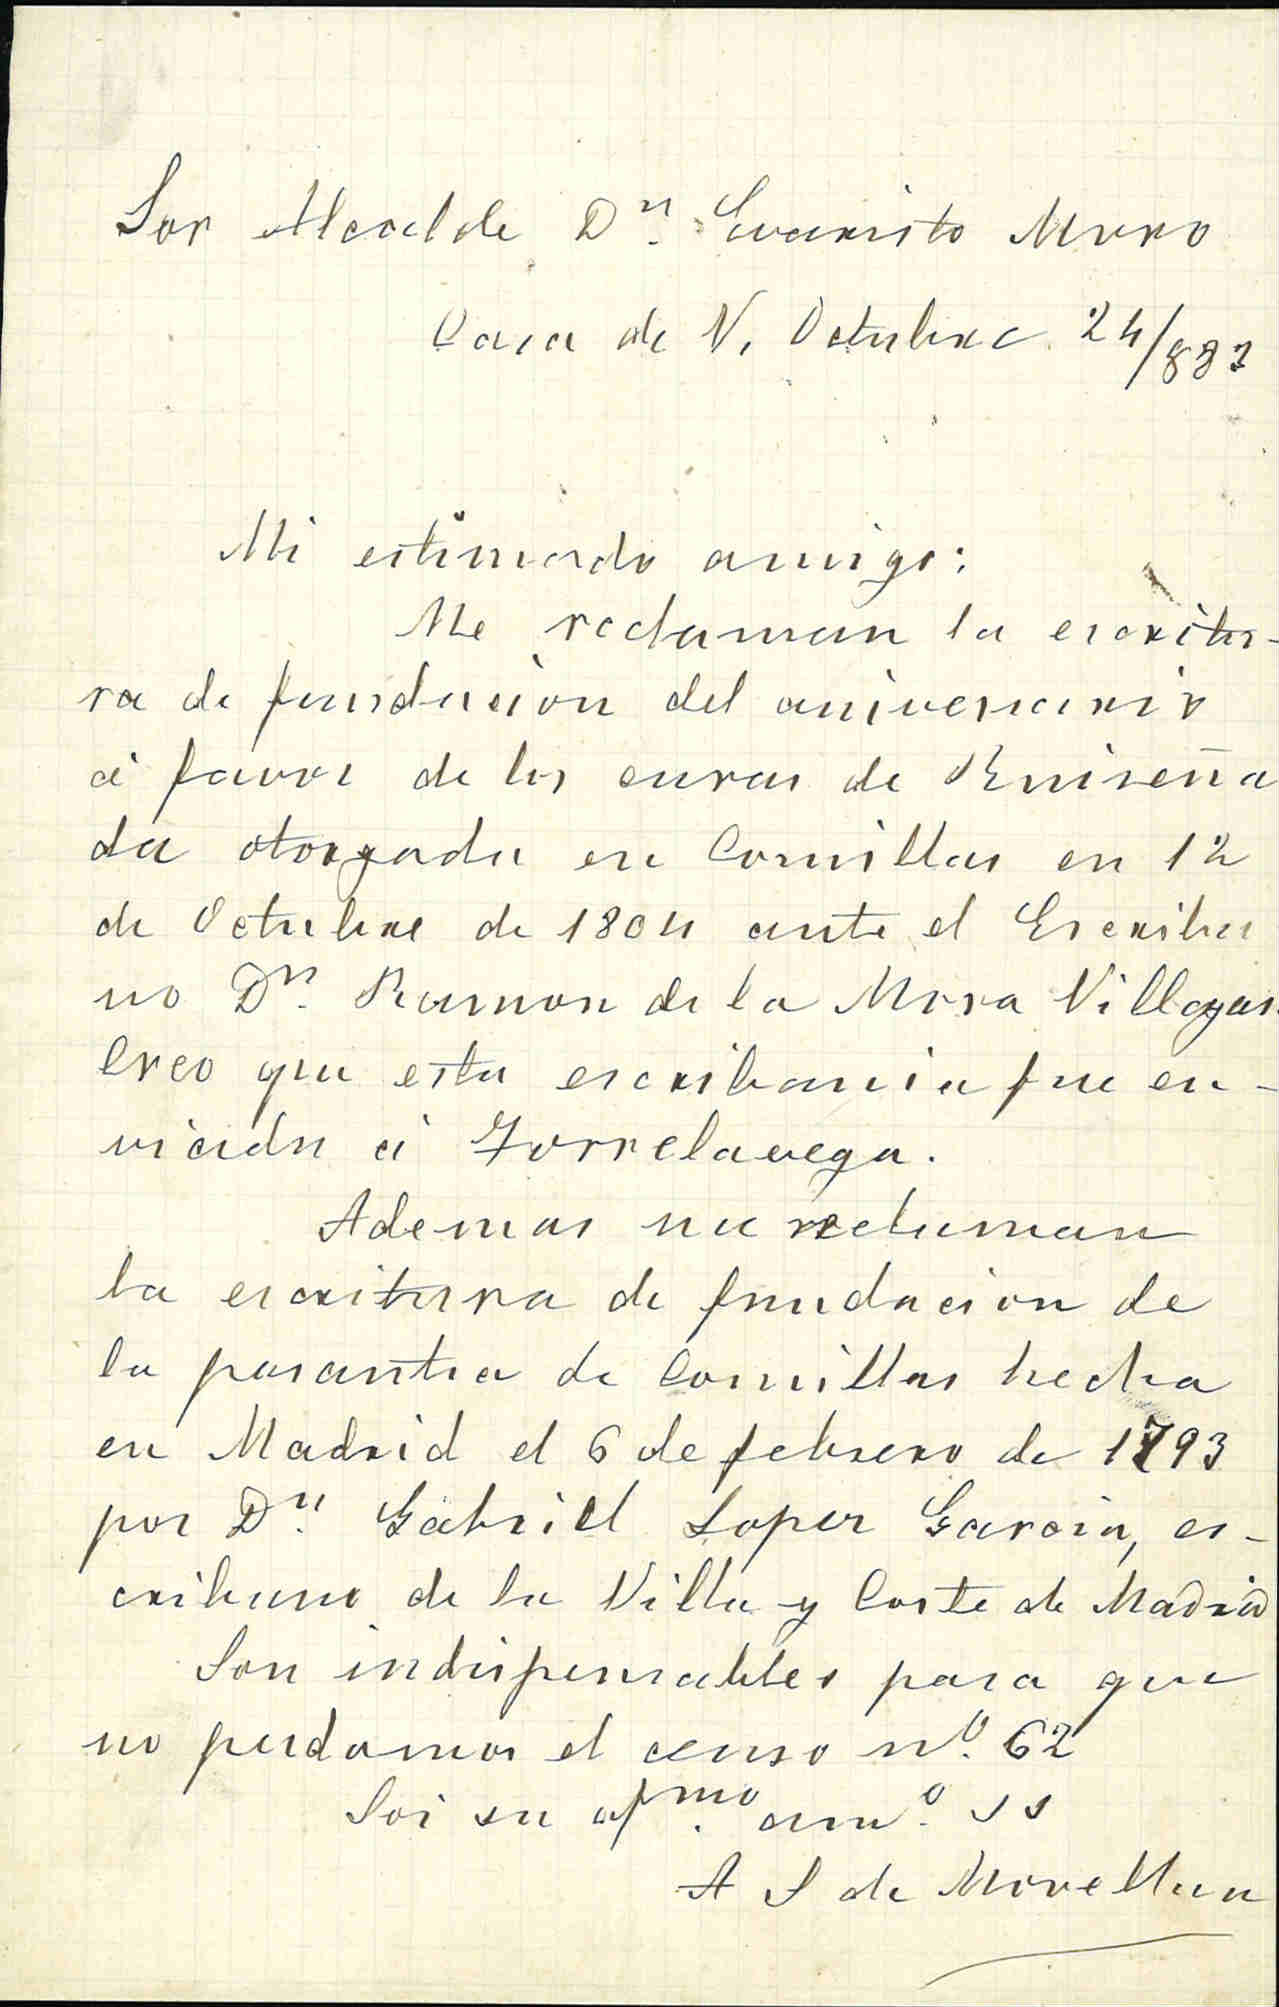 Sor Alcalde Dn. Evaristo Moro
Casa de V. Octubre 24/883
Mi estimado amigo:
Me reclaman la escritu-
ra de fundacion del aniversario
á favor de los curas de Ruiseña
da otorgada en Comillas en 12
de Octubre de 1804 ante el Escriba
no Dn. Ramon de la Mora Villegas.
Creo que esta escribania fue en-
viada á Torrelavega.
Ademas me reclaman
la escritura de fundacion de
la pasantia de Comillas hecha
en Madrid el 6 de febrero de 1793
por Dn. Gabriel Lopez Garcia, es-
cribano de la Villa y Corte de Madrid
Son indispensables para que
no perdamos el censo nº. 62
Soi su afmo. amº. ss
A S de Movellan